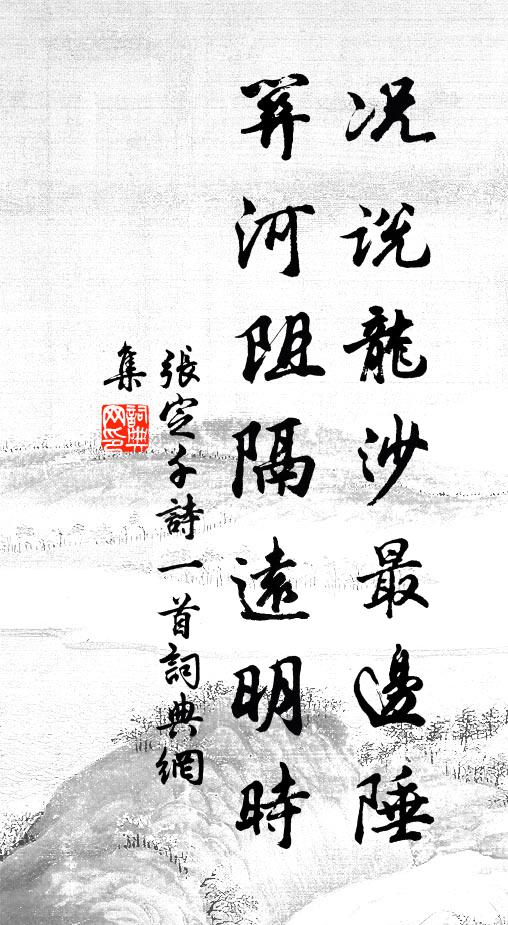 况说龍沙最邊陲
羿河阻隔遠明時
張定子詩一首詞典網
集
詞典網印